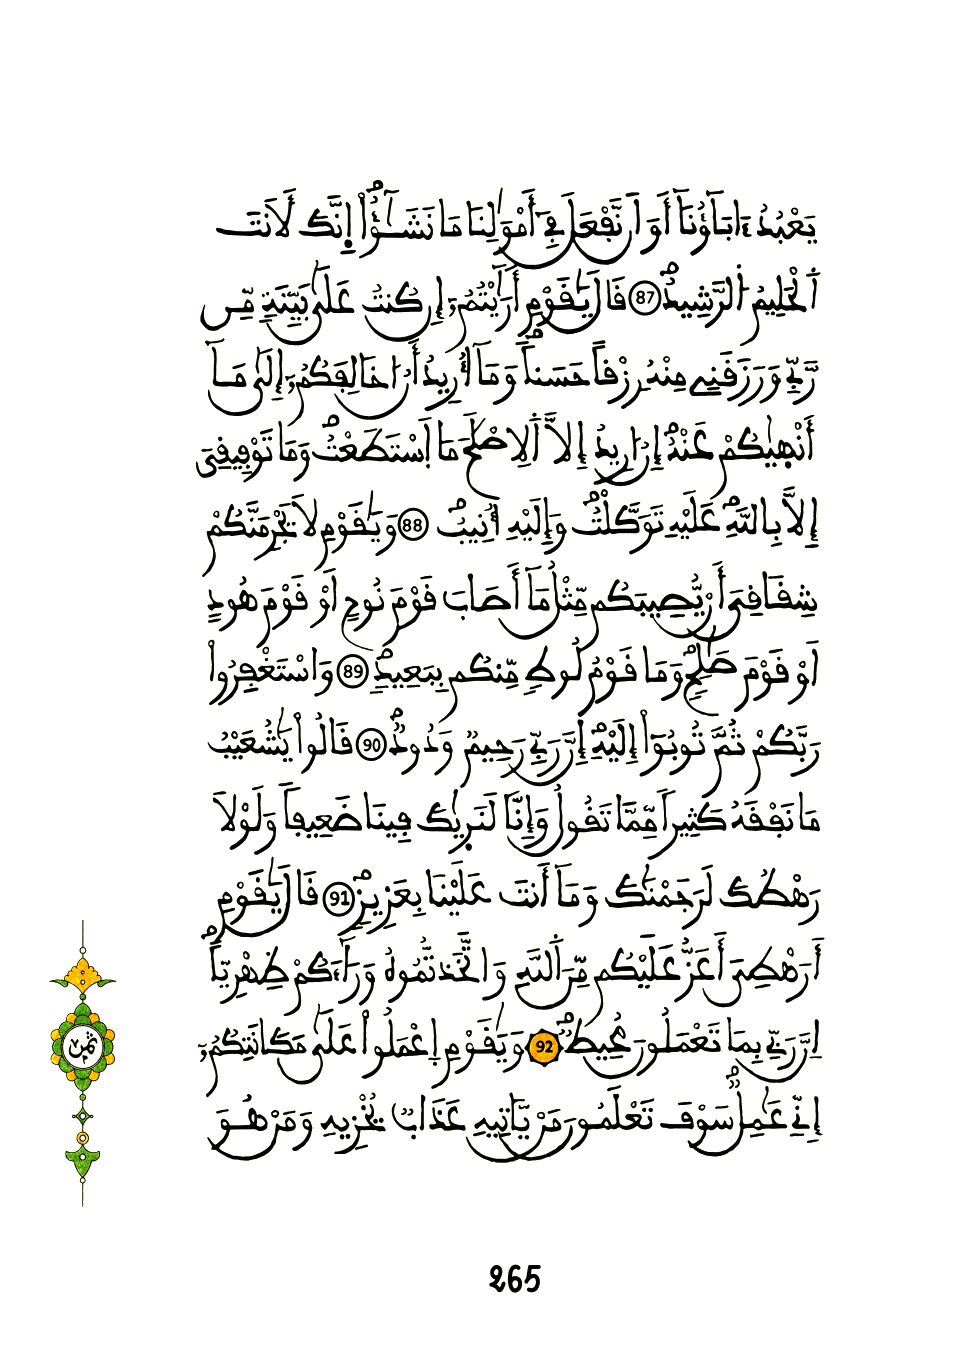 يَعْبُدُ ءَابَآؤُنَآ أَوَ ان نَّفْعَلَ فِےٓ أَمْوَٰلِنَا مَا نَشَـٰٓؤُاْ إِنَّكَ لَأَنتَ
اَ۬لْحَلِيمُ اُ۬لرَّشِيدُ 87 قَالَ يَٰقَوْمِ أَرَٰٓيْتُمُۥٓ إِن كُنتُ عَلَىٰ بَيِّنَةٖ مِّن
رَّبِّے وَرَزَقَنِے مِنْهُ رِزْقاً حَسَناٗ وَمَآ أُرِيدُ أَنُ ا۟خَالِفَكُمُۥٓ إِلَىٰ مَآ
أَنْهَيٰكُمْ عَنْهُۖ إِنُ ا۟رِيدُ إِلَّا اَ۬لِاصْلَٰحَ مَا اَ۪سْتَطَعْتُۖ وَمَا تَوْفِيقِيَ
إِلَّا بِاللَّهِۖ عَلَيْهِ تَوَكَّلْتُۖ وَإِلَيْهِ أُنِيبُۖ 88 وَيَٰقَوْمِ لَا يَجْرِمَنَّكُمْ
شِقَاقِيَ أَنْ يُّصِيبَكُم مِّثْلُ مَآ أَصَابَ قَوْمَ نُوحٍ اَوْ قَوْمَ هُودٍ
اَوْ قَوْمَ صَٰلِحٖۖ وَمَا قَوْمُ لُوطٖ مِّنكُم بِبَعِيدٖۖ 89 وَاسْتَغْفِرُواْ
رَبَّكُمْ ثُمَّ تُوبُوٓاْ إِلَيْهِۖ إِنَّ رَبِّے رَحِيمٞ وَدُودٞۖ 90 قَالُواْ يَٰشُعَيْبُ
مَا نَفْقَهُ كَثِيراٗ مِّمَّا تَقُولُ وَإِنَّا لَنَرَيٰكَ فِينَا ضَعِيفاٗ وَلَوْلَا
رَهْطُكَ لَرَجَمْنَٰكَ وَمَآ أَنتَ عَلَيْنَا بِعَزِيزٖۖ 91 قَالَ يَٰقَوْمِ
أَرَهْطِيَ أَعَزُّ عَلَيْكُم مِّنَ اَ۬للَّهِ وَاتَّخَذتُّمُوهُ وَرَآءَكُمْ ظِهْرِيّاًۖ
اِنَّ رَبِّے بِمَا تَعْمَلُونَ مُحِيطٞۖ 92 وَيَٰقَوْمِ اِعْمَلُواْ عَلَىٰ مَكَانَتِكُمُۥٓ
إِنِّے عَٰمِلٞۖ سَوْفَ تَعْلَمُونَ مَنْ يَّاتِيهِ عَذَابٞ يُخْزِيهِ وَمَنْ هُوَ
ثمن
265